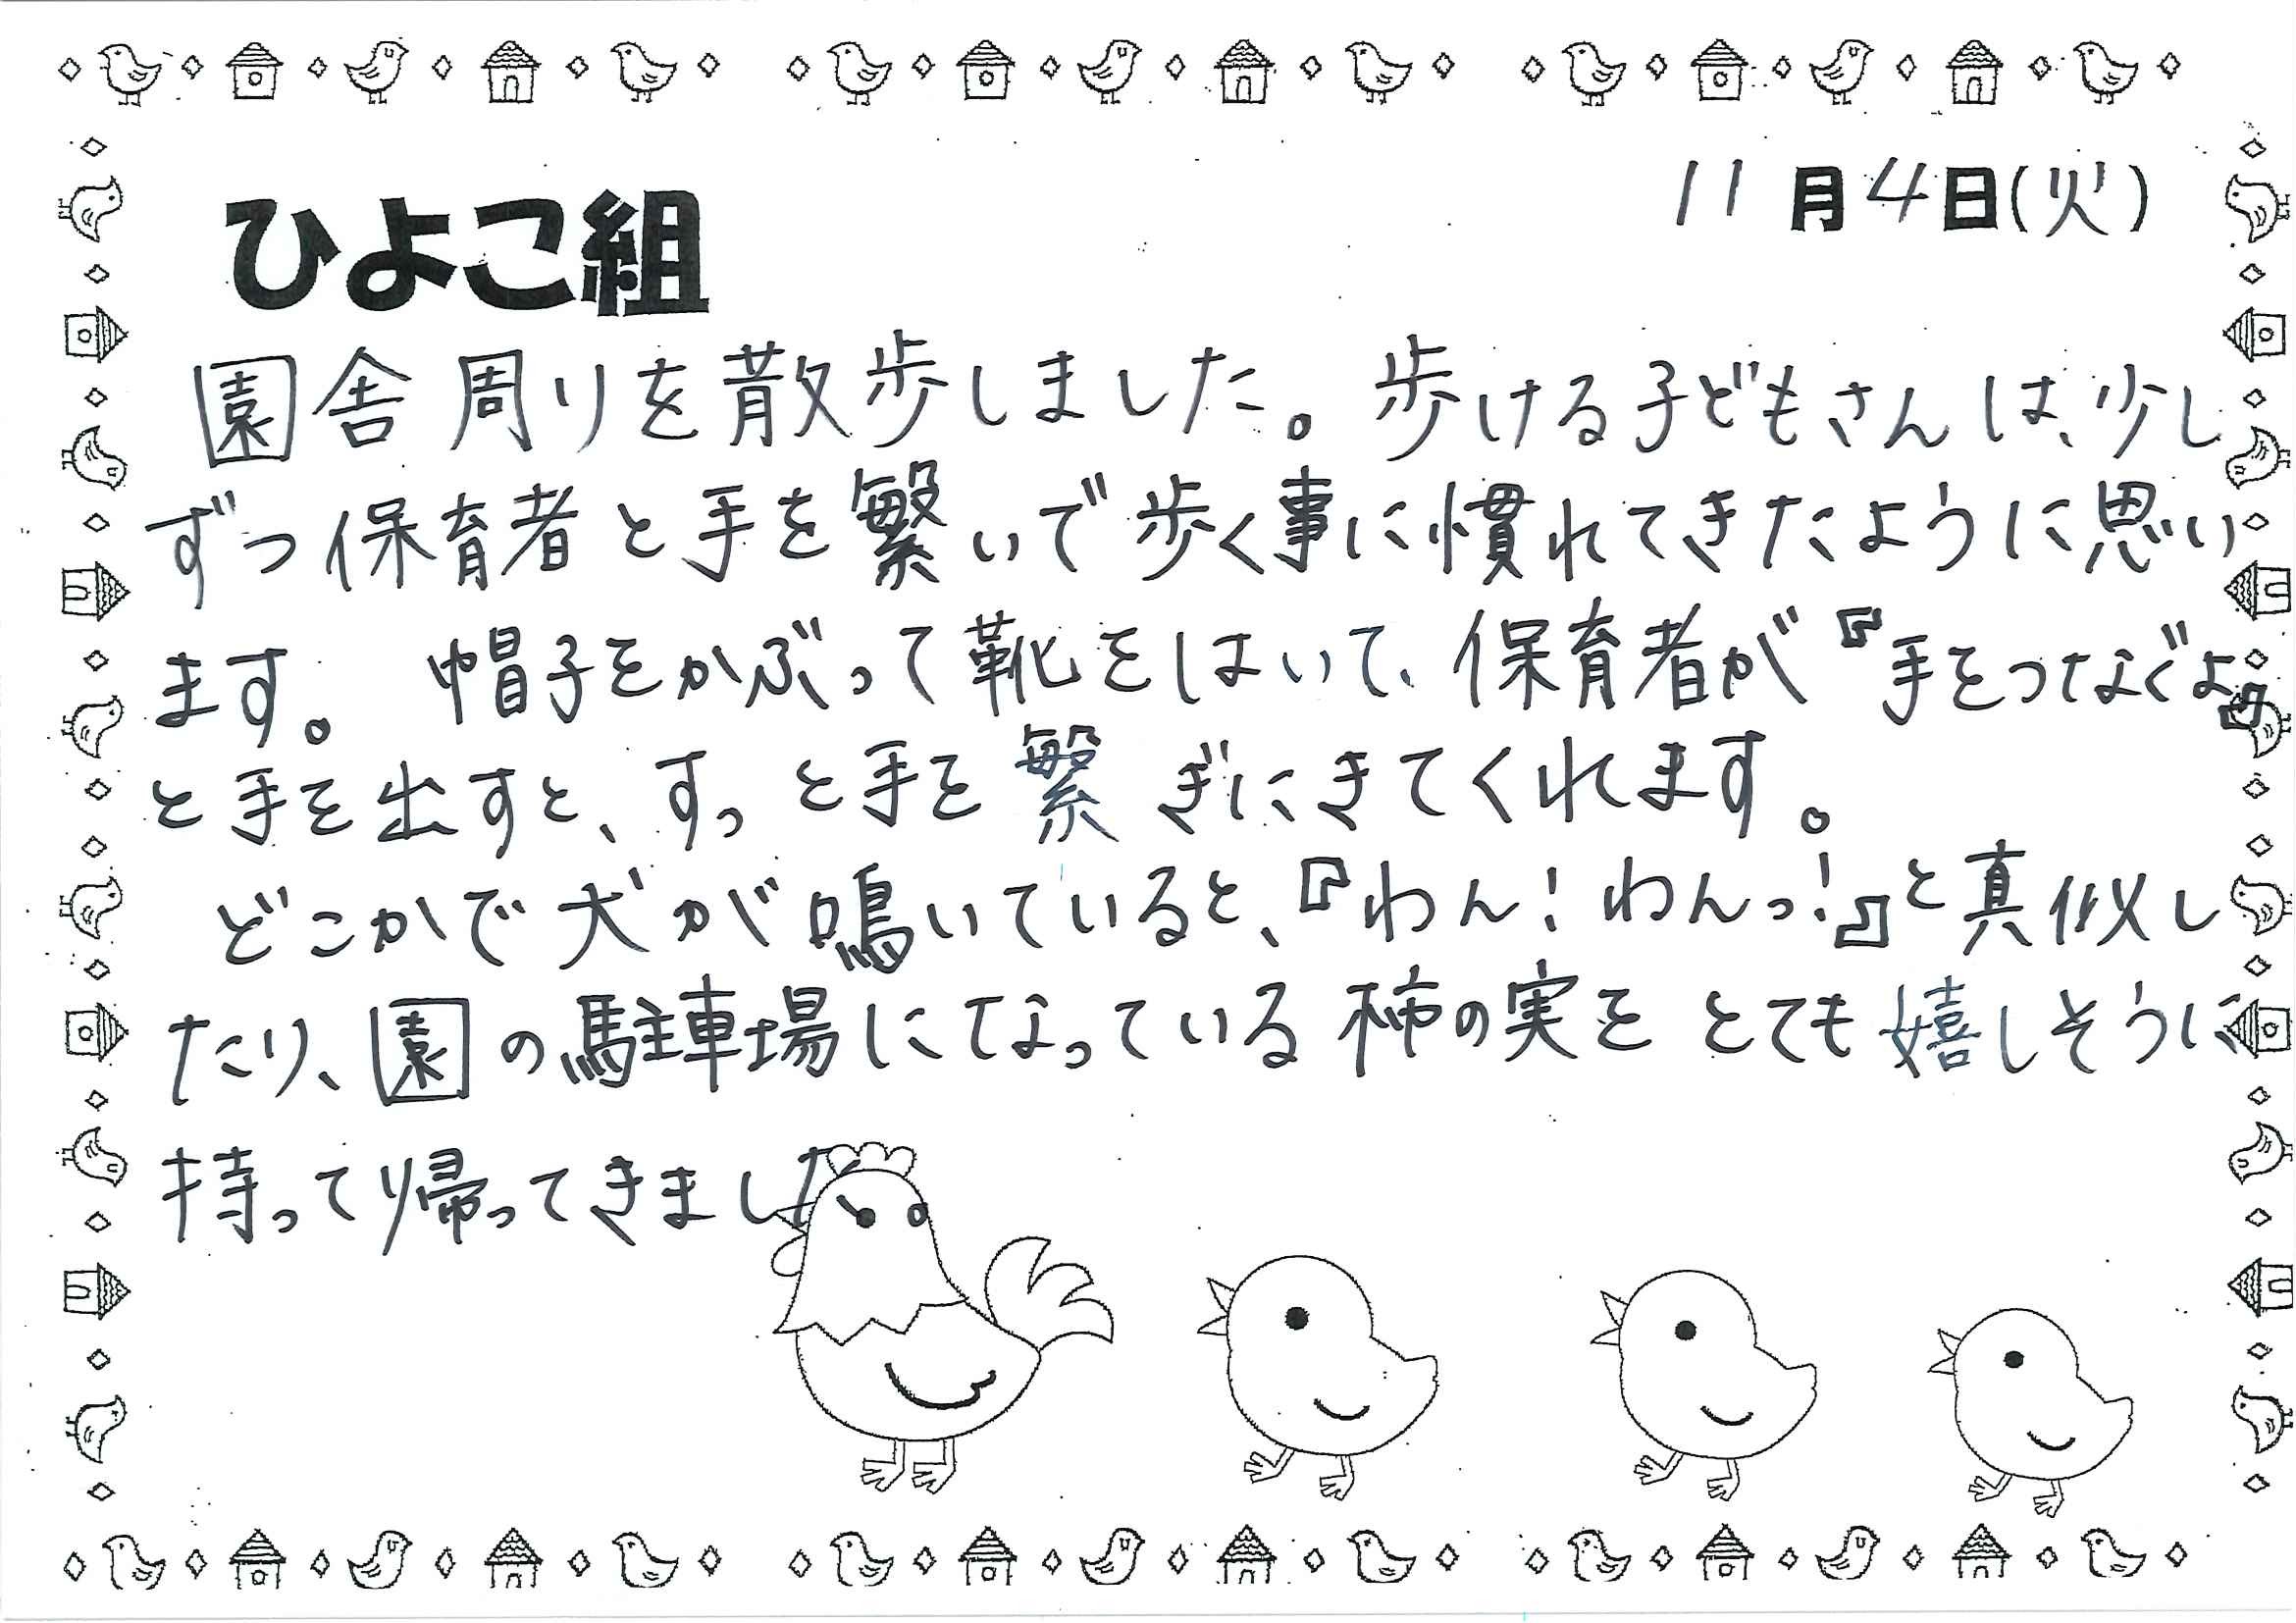 11月4日(火)
ひよこ組
園舎周りを散歩しました。歩ける子どもさんは、少し
ずつ保育者と手を繋いで歩く事に慣れてきたように思い
ます。帽子をかぶって靴をはいて、保育者が『手をつなぐよ。』
と手を出すと、すっと手を繋ぎにきてくれます。
どこかで犬が鳴いていると、『わん!わんっ!』と真似し
たり、園の駐車場になっている柿の実をとても嬉しそうに
持って帰ってきました。